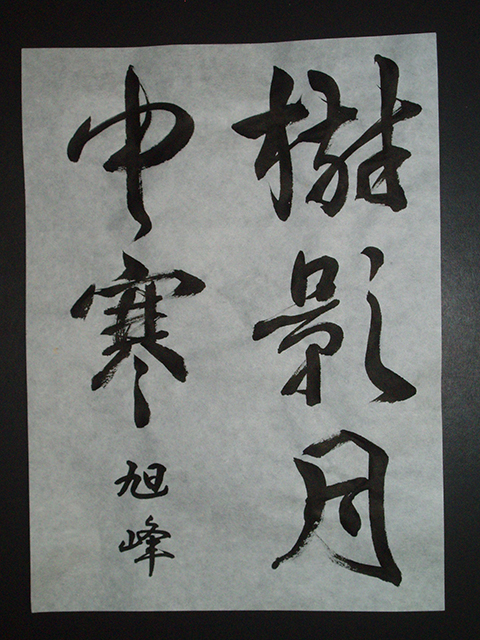 樹影月
中寒
旭峰